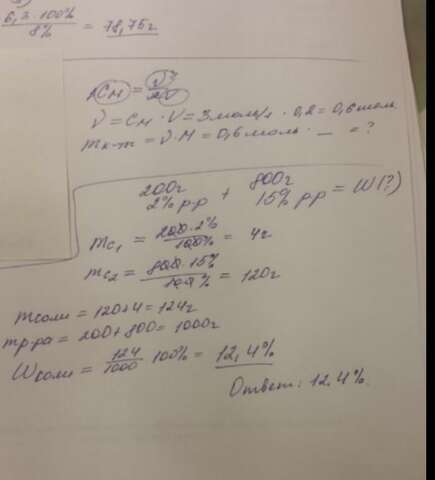 6,3 · 100% / 8% = 78,75г
Cм = ν? / V
ν = Cм · V = 3моль/л · 0,2 = 0,6моль
mк-т = ν · M = 0,6моль · _ = ?
200г 2% р-р + 800г 15% рр = W(?)
mc₁ = 200·2% / 100% = 4г
mc₂ = 800·15% / 100% = 120г
mсоли = 120+4 = 124г
mр-ра = 200+800 = 1000г
Wсоли = 124 / 1000 100% = 12,4%
Ответ: 12,4%.